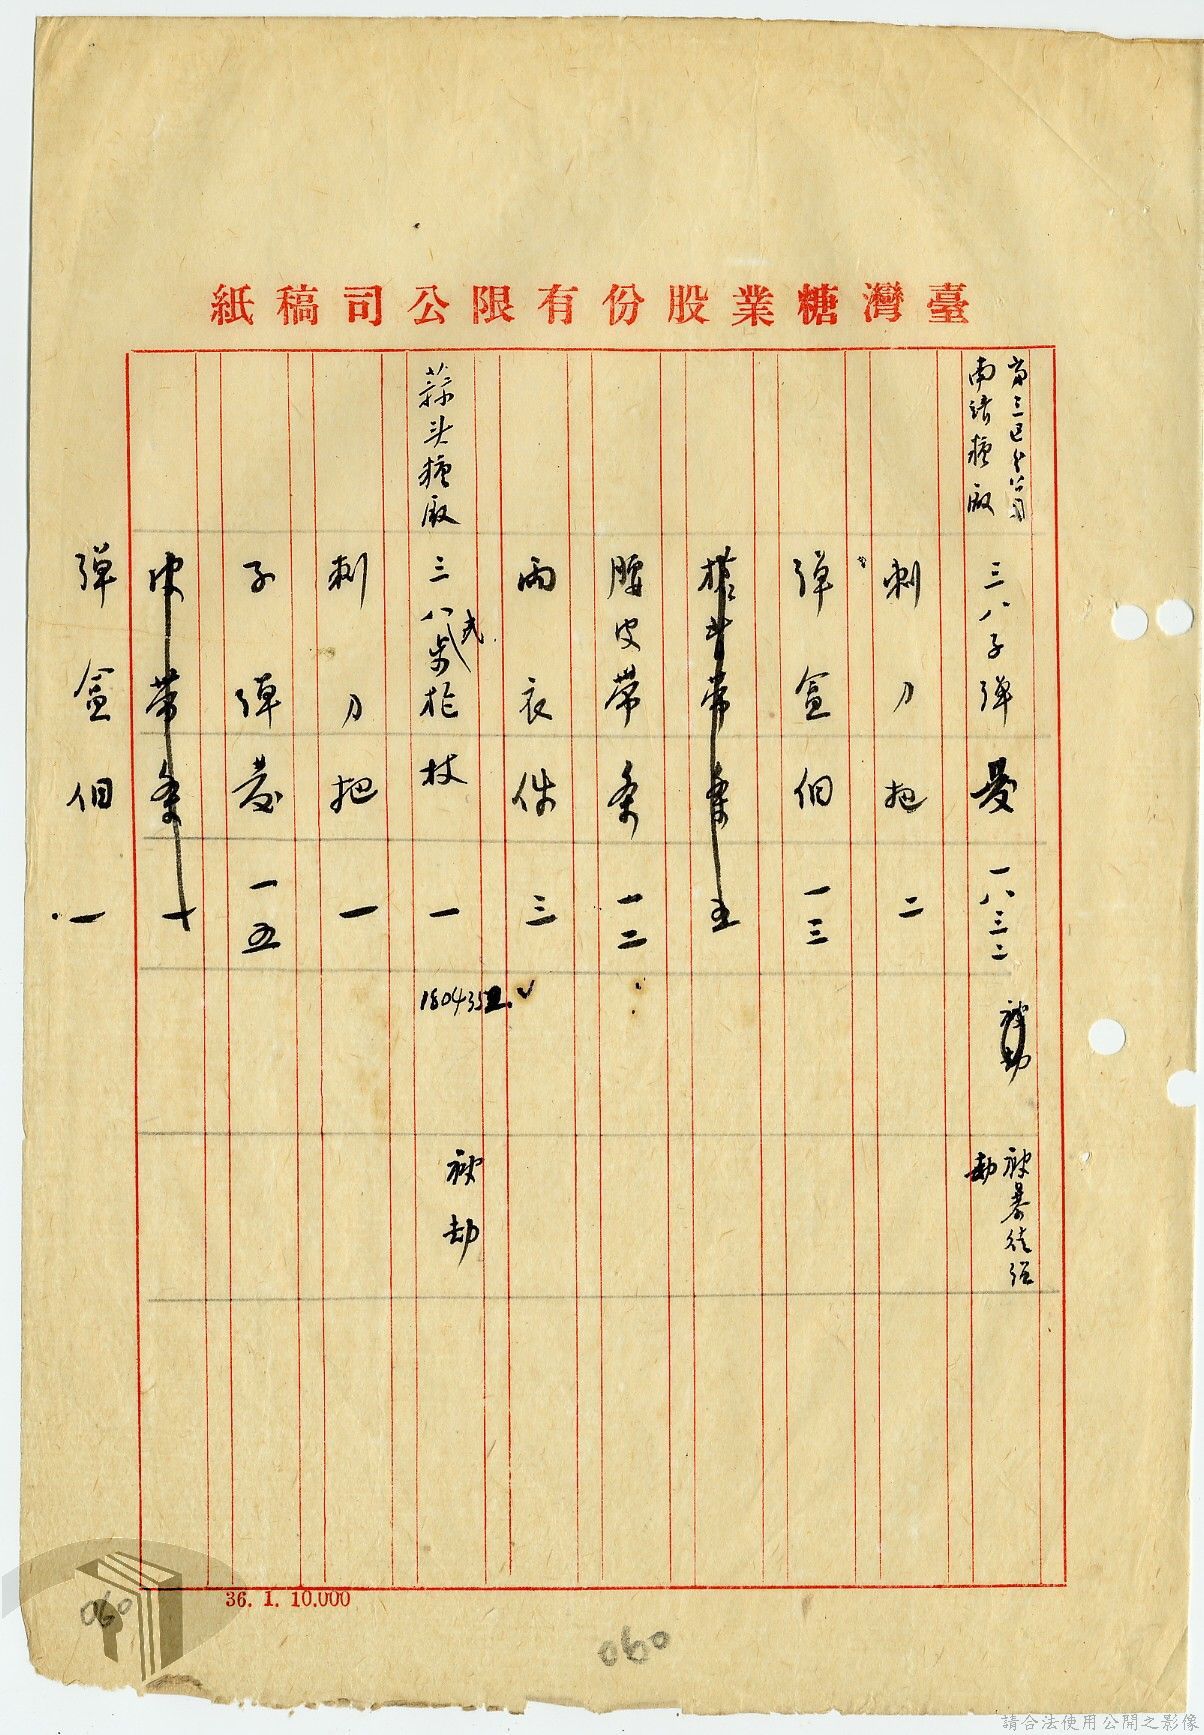 臺灣糖業股份有限公司稿紙
第三區分公司
南靖糖廠
三八子彈 發 一八三二 被劫 被暴徒強
劫
刺刀 把 二
彈盒 個 一三
皮帶 條 五
腰皮帶 条 一二
雨衣 件 三
蒜头糖廠 三八式步枪 枝 一 1804352. 被劫
刺刀 把 一
子彈 發 一五
皮帶 条 十
彈盒 個 一
36. 1. 10.000
060
060
請合法使用公開之影像